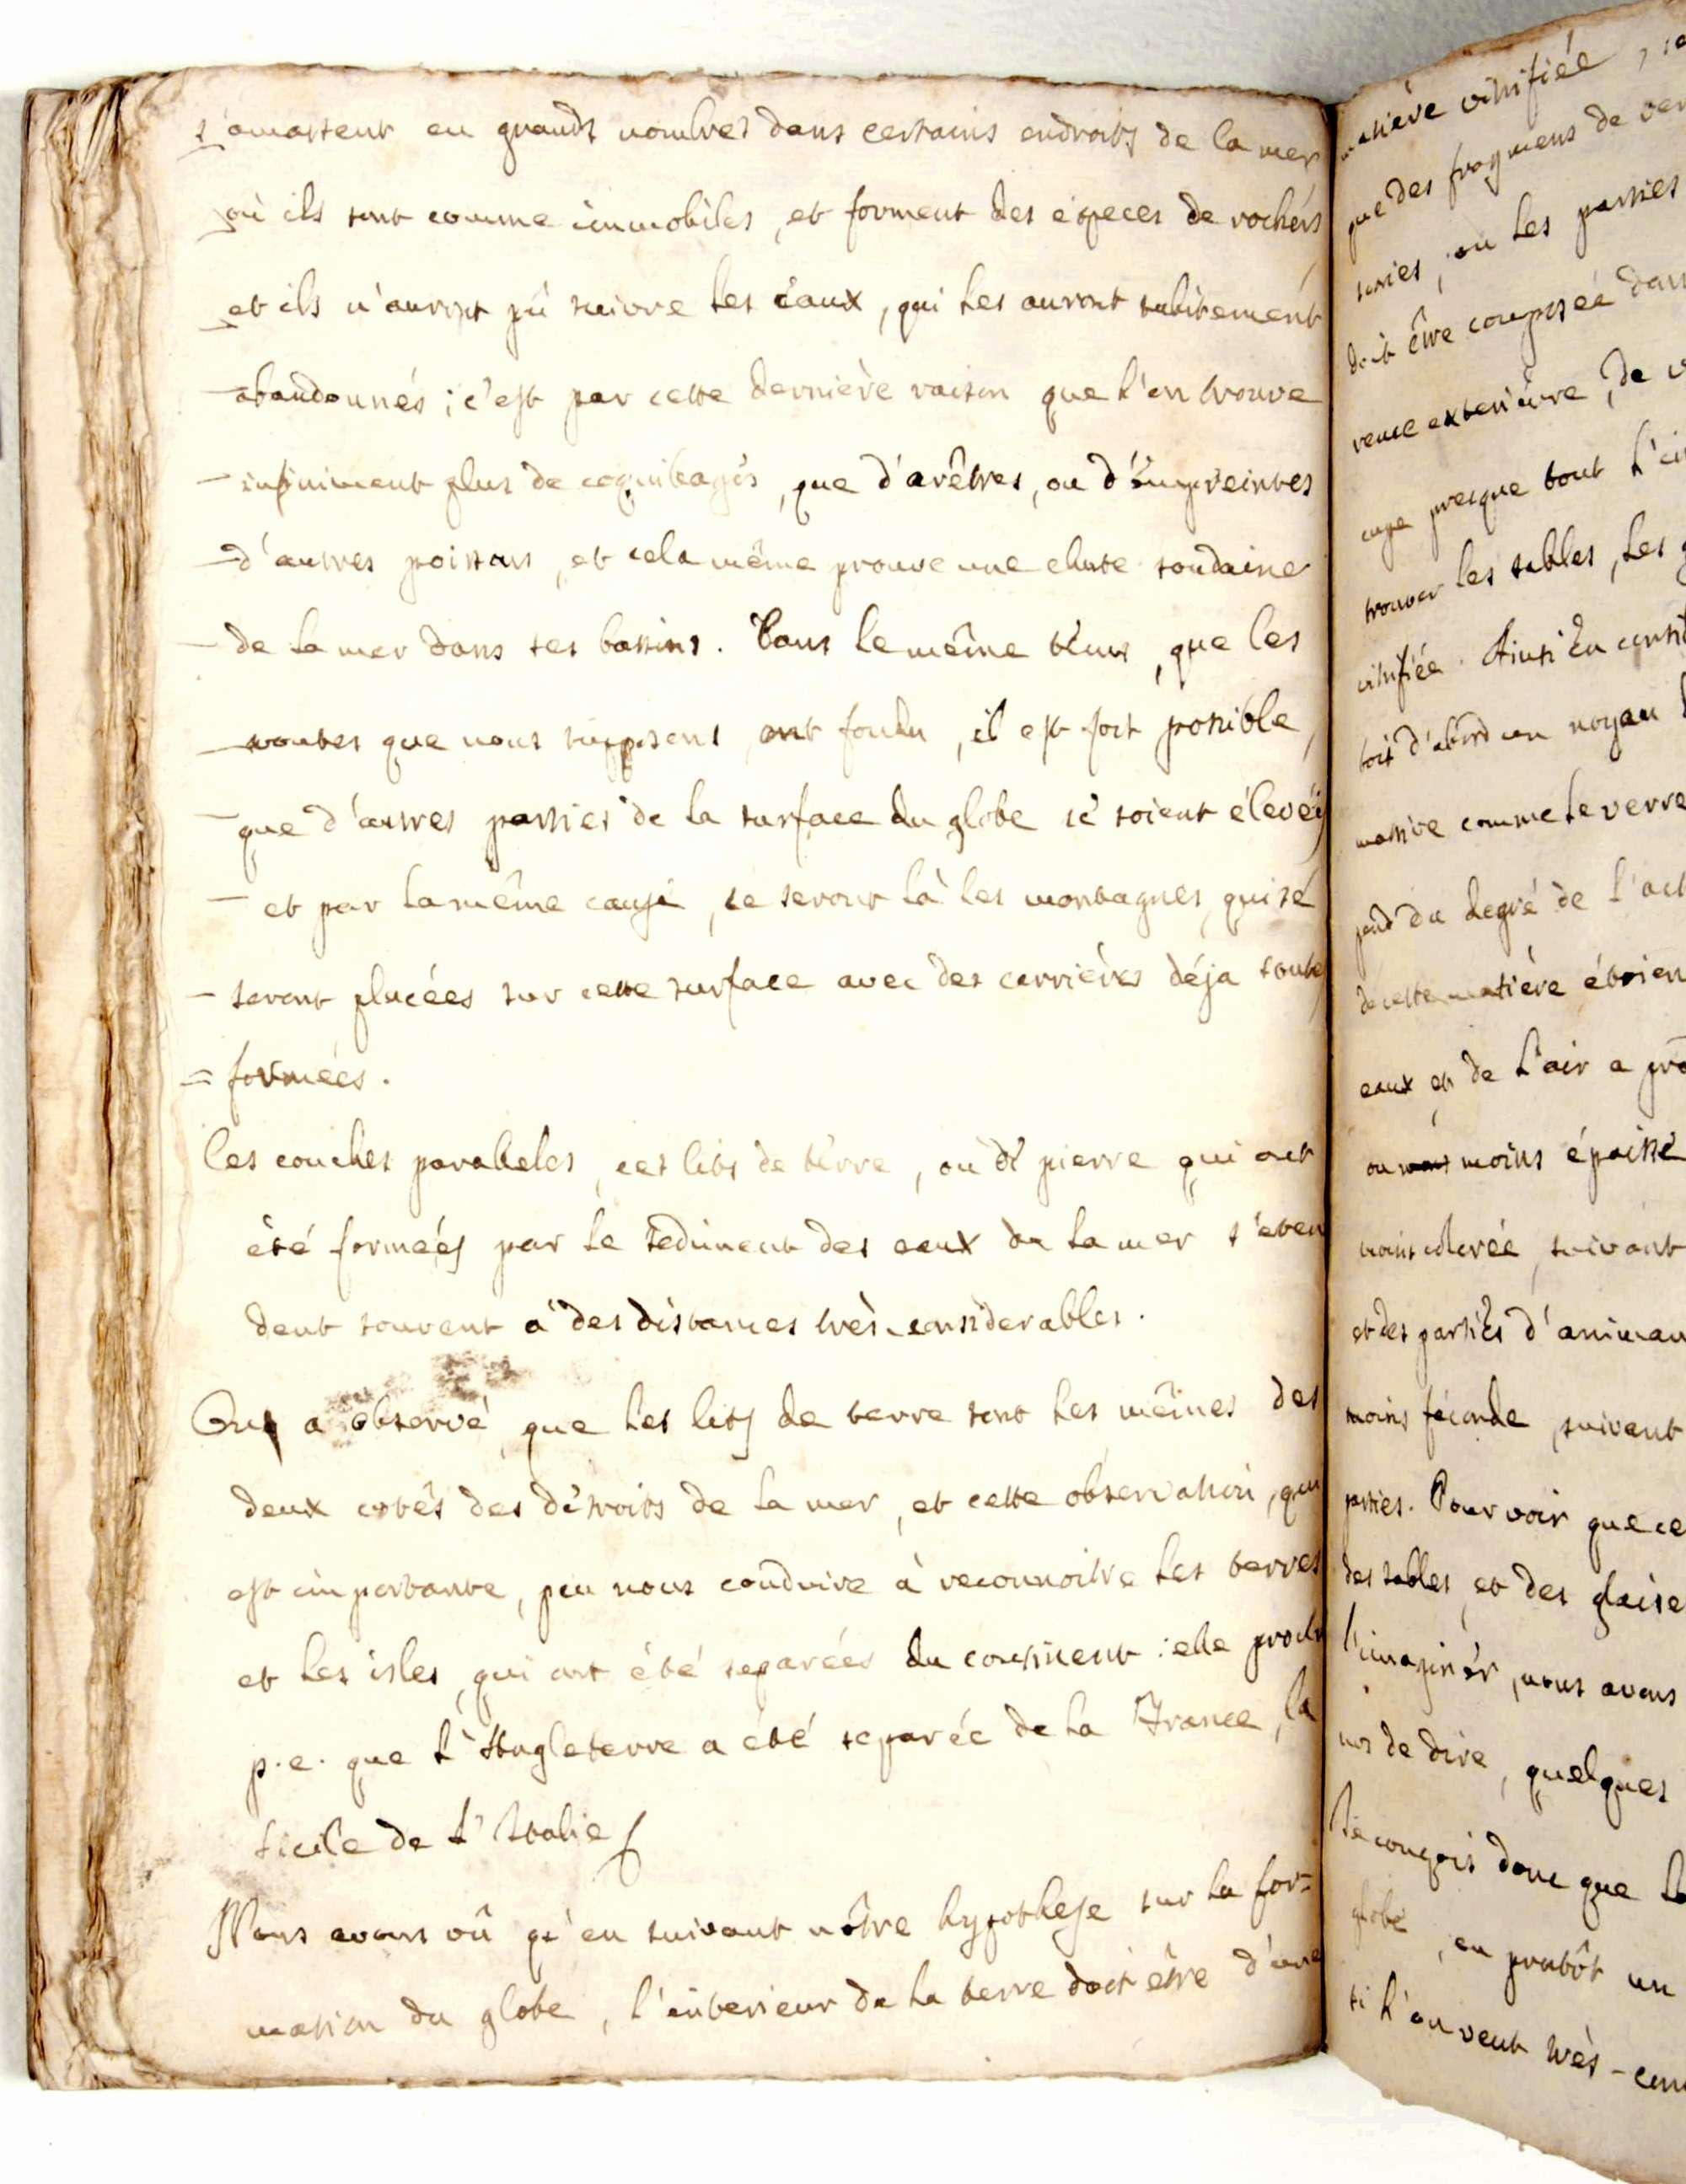 s'amassent en grands nombres dans certains endroits de la mer
où ils sont comme immobiles, et forment des éspeces de rochers
et ils n'auront pû suivre les eaux, qui les auront subitement
abandonnés; c'est par cette dernière raison que l'on trouve
infiniment plus de coquilages, que d'arêtres, ou d'émpreintes
d'autres poissons, et cela même prouve une chute soudaine
de la mer dans ses bassins. Dans le même téms, que les
voutes que nous supposons, ont fondu, il est fort possible,
que d'autres parties de la surface du globe sé soient élevéés
et par la même cause, ce seront là les montagnes, qui sé
seront placées sur cette surface avec des carrières déja toute
= formées.
les couches paralleles, ces lits de térre, ou dé pierre qui ont
été formées par le sediment des eaux de la mer s'eten
dent souvent à des distances très considerables.
On a observé, que les lits de terre sont les mêmes des
deux cotés des détroits de la mer, et cette observation, qui
est importante, peu nous conduire à reconnoitre les terres
et les isles, qui ont été separées du continent: elle prouv
p. e. que l'Angleterre a été separée de la France, la
sicile de l'Italie
Nous avons vû qu'en suivant nôtre hypothese sur la for=
mation du globe, l'interieur de la terre doit être d'une
matière vitrifiée,
que des fragmens de ver
sories, ou les parties
doit être composée dan
rence exterieure, de
cupe presque tout l'
trouver les sables, les g
vitrifiée. Ainsi en consi
toit d'abord un noyau
massive comme le verre
pend du degré de l'act
de cette matière étoien
eaux et de l'air a pro
ou moins épaisse
moins colorée, suivant
et des parties d'animau
moins féconde, suivant
parties. Pour voir que ce
des sables, et des glaise
l'imaginér, nous avons
nos de dire, quelques
Je conçois donc que la
globe, ou prutôt un
si l'on veut très-con